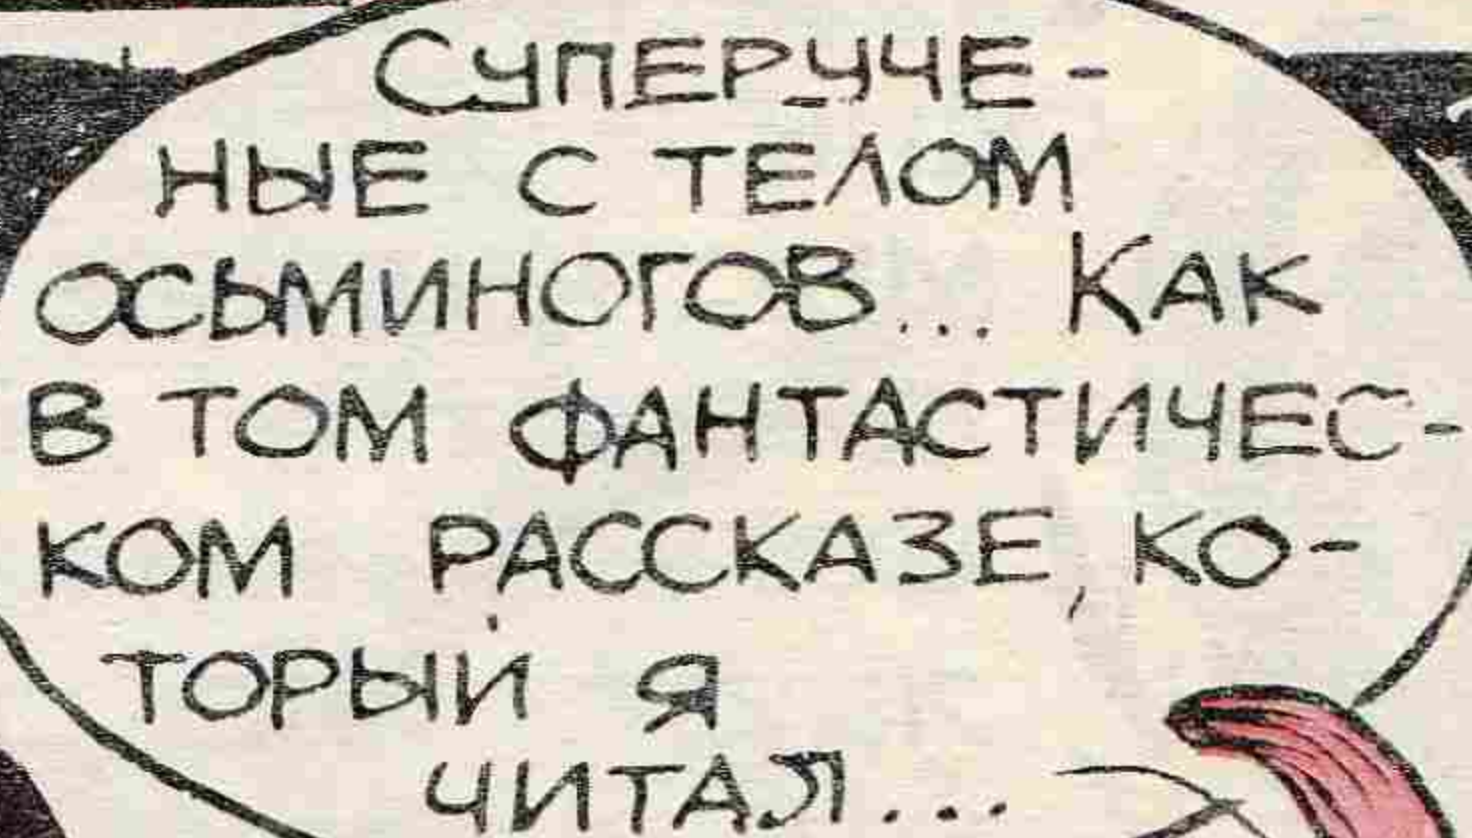 СУПЕРУЧЕ-
НЫЕ С ТЕЛОМ
ОСЬМИНОГОВ... КАК
В ТОМ ФАНТАСТИЧЕС-
КОМ РАССКАЗЕ, КО-
ТОРЫЙ Я
ЧИТАЛ...